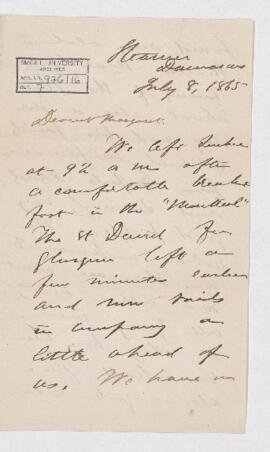 McGILL UNIVERSITY
ARCHIVES
ACC. NO. 976/16
REF. 7
Steamer
Damascus
July 8, 1865
Dearest Margaret.
We left Quebec
at 9½ a m after
a comfortable break
fast in the "Montreal"
The St David for
Glasgow left a
few minutes earlier
and now sails
in company a
little ahead of
us. We have in